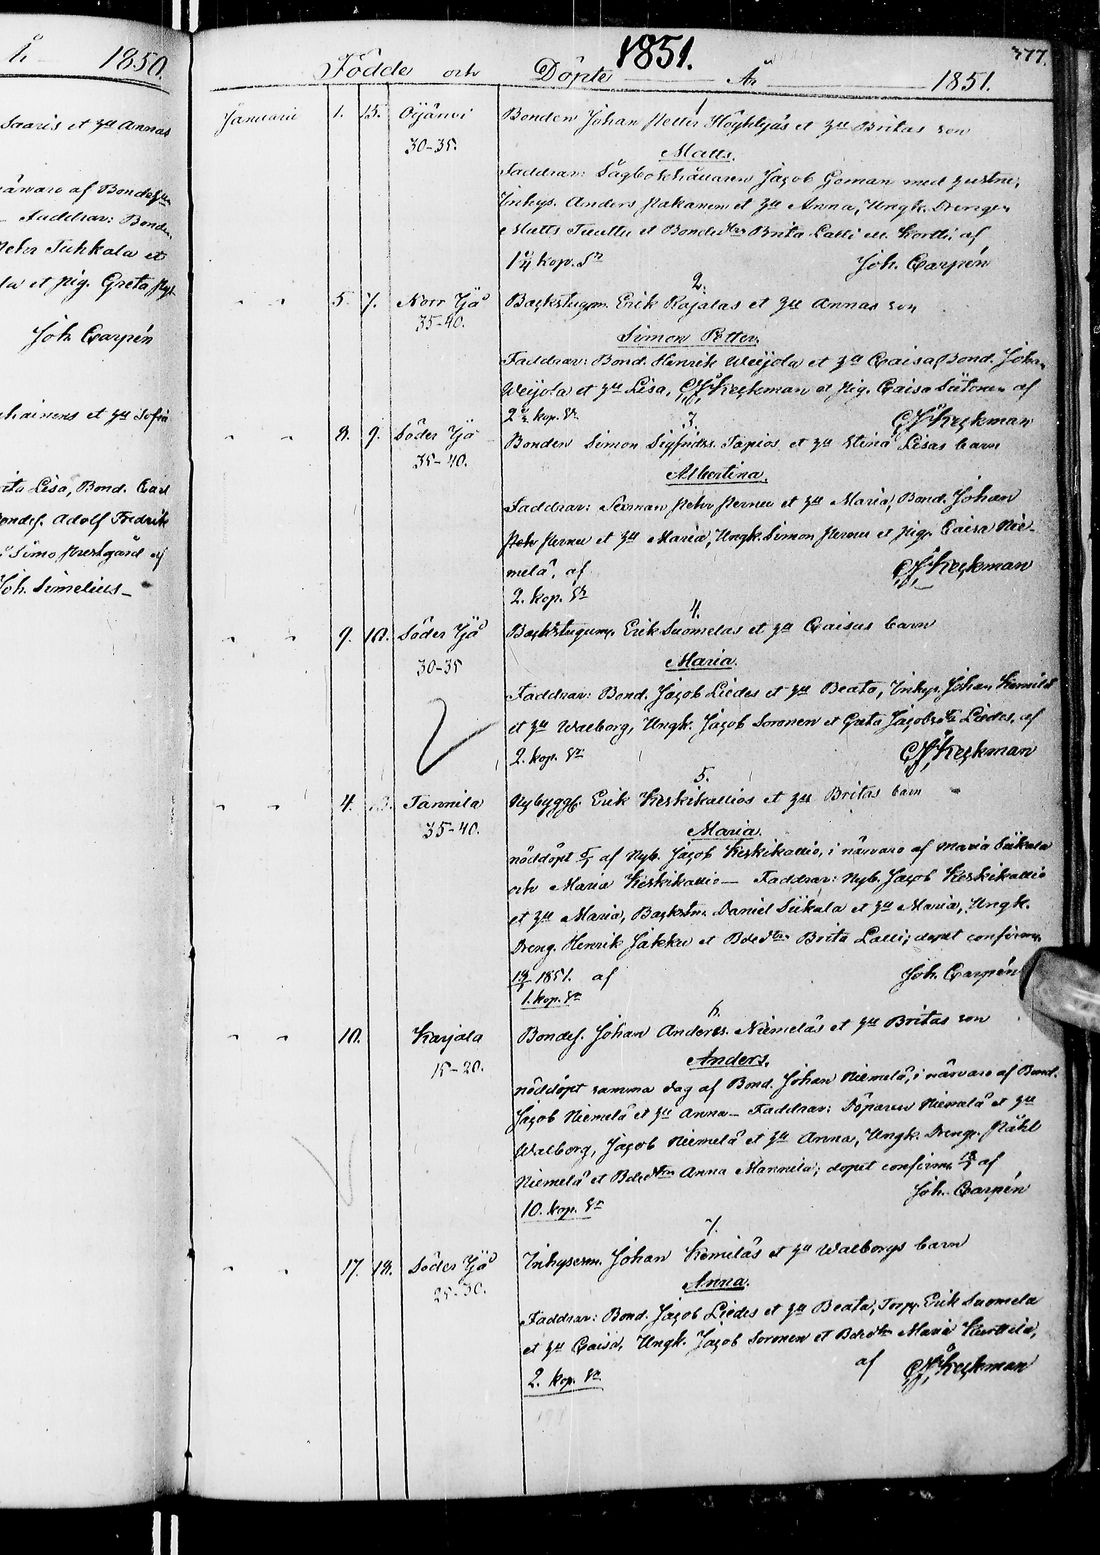 År 1850.
Saaris et hu Annas
närvaro af Bondes
Faddrar: Bonden
Petter Tuhkala et
la et pig. Greta
Joh. Carpén
et hu Sofia
Brita Lisa, Bond. Carl
Bondes. Adolf Fredrik
Simo prestgård af
Joh. Simelius
1851. 377.
Födde och Döpte År 1851.
1.
Januarii 1. 15. Oijänvi Bonden Johan Petter Höykkyäs et hu Britas son
30-35. Matts.
Faddrar: Sågbokhållaren Jacob Goman med hustru;
Inhys. Anders Hakanen et hu Anna, Ungk. Drengen
Matts Tuuttu et Bondedtr Brita Lalli af
1 1/4 kop. Sr Joh. Carpén
2.
" " 5. 7. Norr Ijå Backstugm. Erik Kajalas et hu Annas son
35-40. Simon Petter.
Faddrar: Bond. Henrik Weijola et hu Caisa, Bond. Johan
Weijola et hu Lisa, Keckman et pig. Caisa Siitonen af
2 kop. Sr Keckman
3.
" " 8. 9. Söder Ijå Bonden Simon Sigfrids. Tapios et hu Stina Lisas barn
35-40. Albertina.
Faddrar: Sexman Petr et hu Maria, Bond. Johan
Petr et hu Maria, Ungk. Simon et pig. Caisa Nie-
melä, af Keckman
2. kop. Sr
4.
" " 9. 10. Söder Ijå Backstugum. Erik Suomelas et hu Caisas barn
30-35 Maria.
Faddrar: Bond. Jacob Liedes et hu Beata, Inhys. Johan Kemilä
et hu Walborg, Ungk. Jacob Soronen et Greta Jacobsdtr Liedes, af
2. kop. Sr Keckman
5.
" " 4. 12. Tannila Nybygg. Erik Keskikallios et hu Britas barn
35-40. Maria.
nöddöpt af Nyb. Jacob Keskikallio, i närvaro af Maria Siikala
och Maria Keskikallio — Faddrar: Nyb. Jacob Keskikallio
et hu Maria, Backstm. Daniel Siikala et hu Maria, Ungk.
Dreng. Henrik Jakku et Bdedtr Brita Lalli; dopet confirm.
1851. af Joh. Carpén
1. kop. Sr
6.
" " 10. Karjala Bondes. Johan Anders. Niemeläs et hu Britas son
15-20. Anders.
nöddöpt samma dag af Bond. Johan Niemelä, i närvaro af Bond.
Jacob Niemelä et hu Anna — Faddrar: Döparen Niemelä et hu
Walborg, Jacob Niemelä et hu Anna, Ungk. Dreng. Påhl
Niemelä et Bdedtr Anna Mannila; dopet confirm. af
10. kop. Sr Joh. Carpén
7.
" " 17. 18. Söder Ijå Inhysesm. Johan Kemiläs et hu Walborgs barn
25-30. Anna.
Faddrar: Bond. Jacob Liedes et hu Beata, Torp. Erik Suomela
et hu Caisa, Ungk. Jacob Soronen et Bdedtr Maria Kurttila,
2. kop. Sr af Keckman